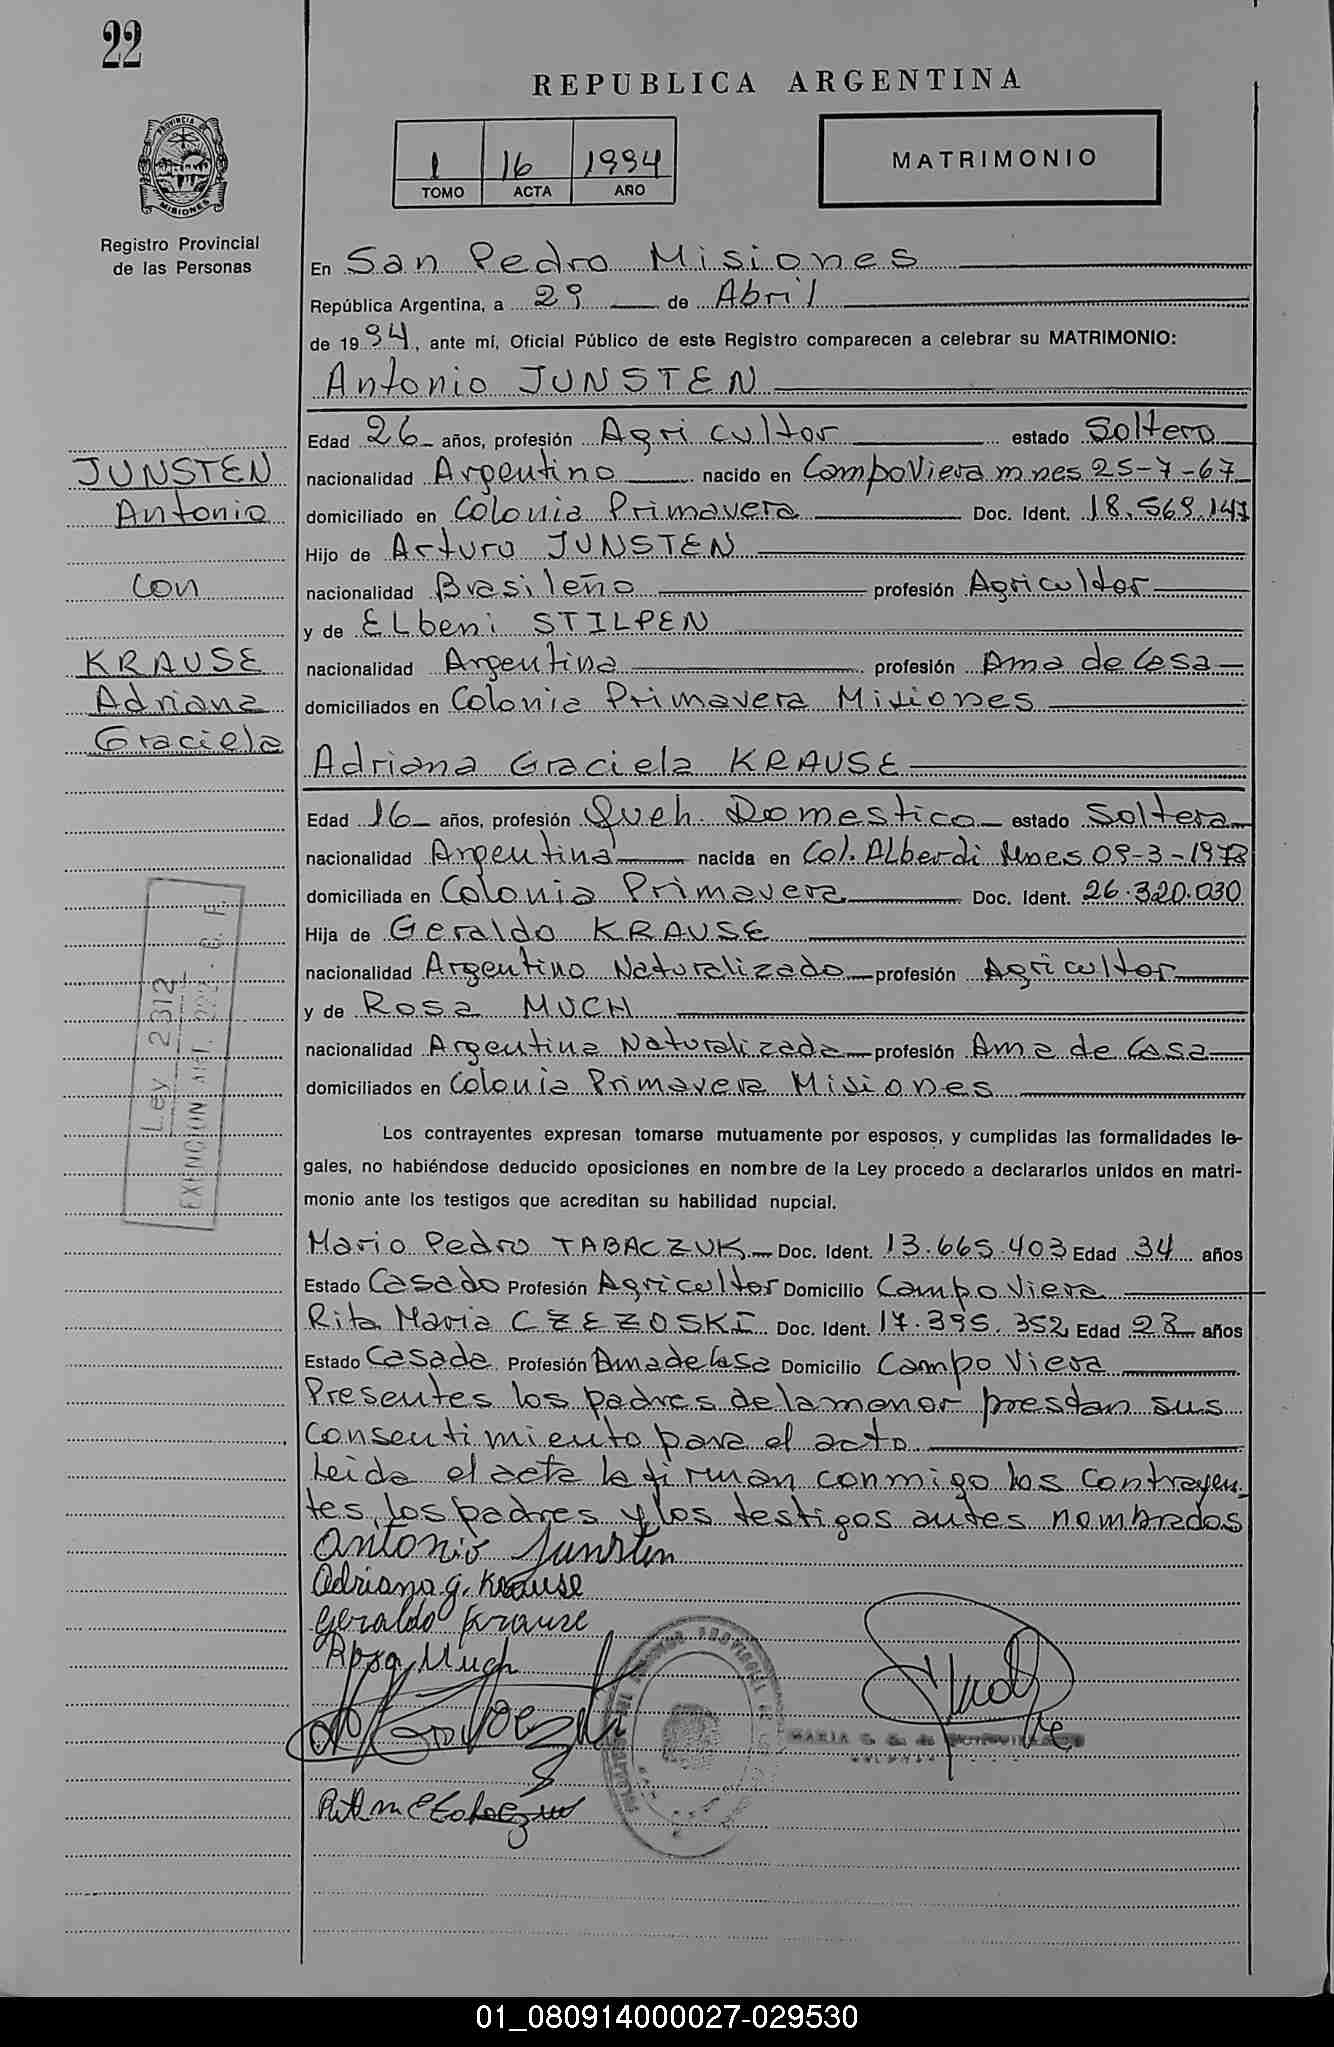 22
REPUBLICA ARGENTINA
1 16 1994
TOMO ACTA AÑO
MATRIMONIO
PROVINCIA DE
MISIONES
Registro Provincial
de las Personas
En San Pedro Misiones
República Argentina, a 29 de Abril
de 1994, ante mí, Oficial Público de este Registro comparecen a celebrar su MATRIMONIO:
Antonio JUNSTEN
Edad 26 años, profesión Agricultor estado Soltero
JUNSTEN
nacionalidad Argentino nacido en Campo Viera mnes 25-7-67
Antonio
domiciliado en Colonia Primavera Doc. Ident. 18.569.141
Hijo de Arturo JUNSTEN
con
nacionalidad Brasileño profesión Agricultor
y de ELbeni STILPEN
KRAUSE
nacionalidad Argentina profesión Ama de Casa
Adriana
domiciliados en Colonia Primavera Misiones
Graciela
Adriana Graciela KRAUSE
Edad 16 años, profesión Queh. Domestico estado Soltera
nacionalidad Argentina nacida en Col. ALberdi Mnes 09-3-1978
domiciliada en Colonia Primavera Doc. Ident. 26.320.030
Hija de Geraldo KRAUSE
nacionalidad Argentino Naturalizado profesión Agricultor
y de Rosa MUCH
nacionalidad Argentina Naturalizada profesión Ama de Casa
domiciliados en Colonia Primavera Misiones
Ley 2312
EXENCION ART.
Los contrayentes expresan tomarse mutuamente por esposos, y cumplidas las formalidades le-
gales, no habiéndose deducido oposiciones en nombre de la Ley procedo a declararlos unidos en matri-
monio ante los testigos que acreditan su habilidad nupcial.
Mario Pedro TABACZUK Doc. Ident. 13.665.403 Edad 34 años
Estado Casado Profesión Agricultor Domicilio Campo Viera
Rita Maria CZEZOSKI Doc. Ident. 17.395.352 Edad 28 años
Estado Casada Profesión Ama de Casa Domicilio Campo Viera
Presentes los padres de la menor prestan sus
consentimiento para el acto
Leida el acta la firman conmigo los contrayen-
tes, los padres y los testigos antes nombrados
Antonio Junsten
Adriana G. Krause
Geraldo Krause
Rosa Much
MARIA
01_080914000027-029530